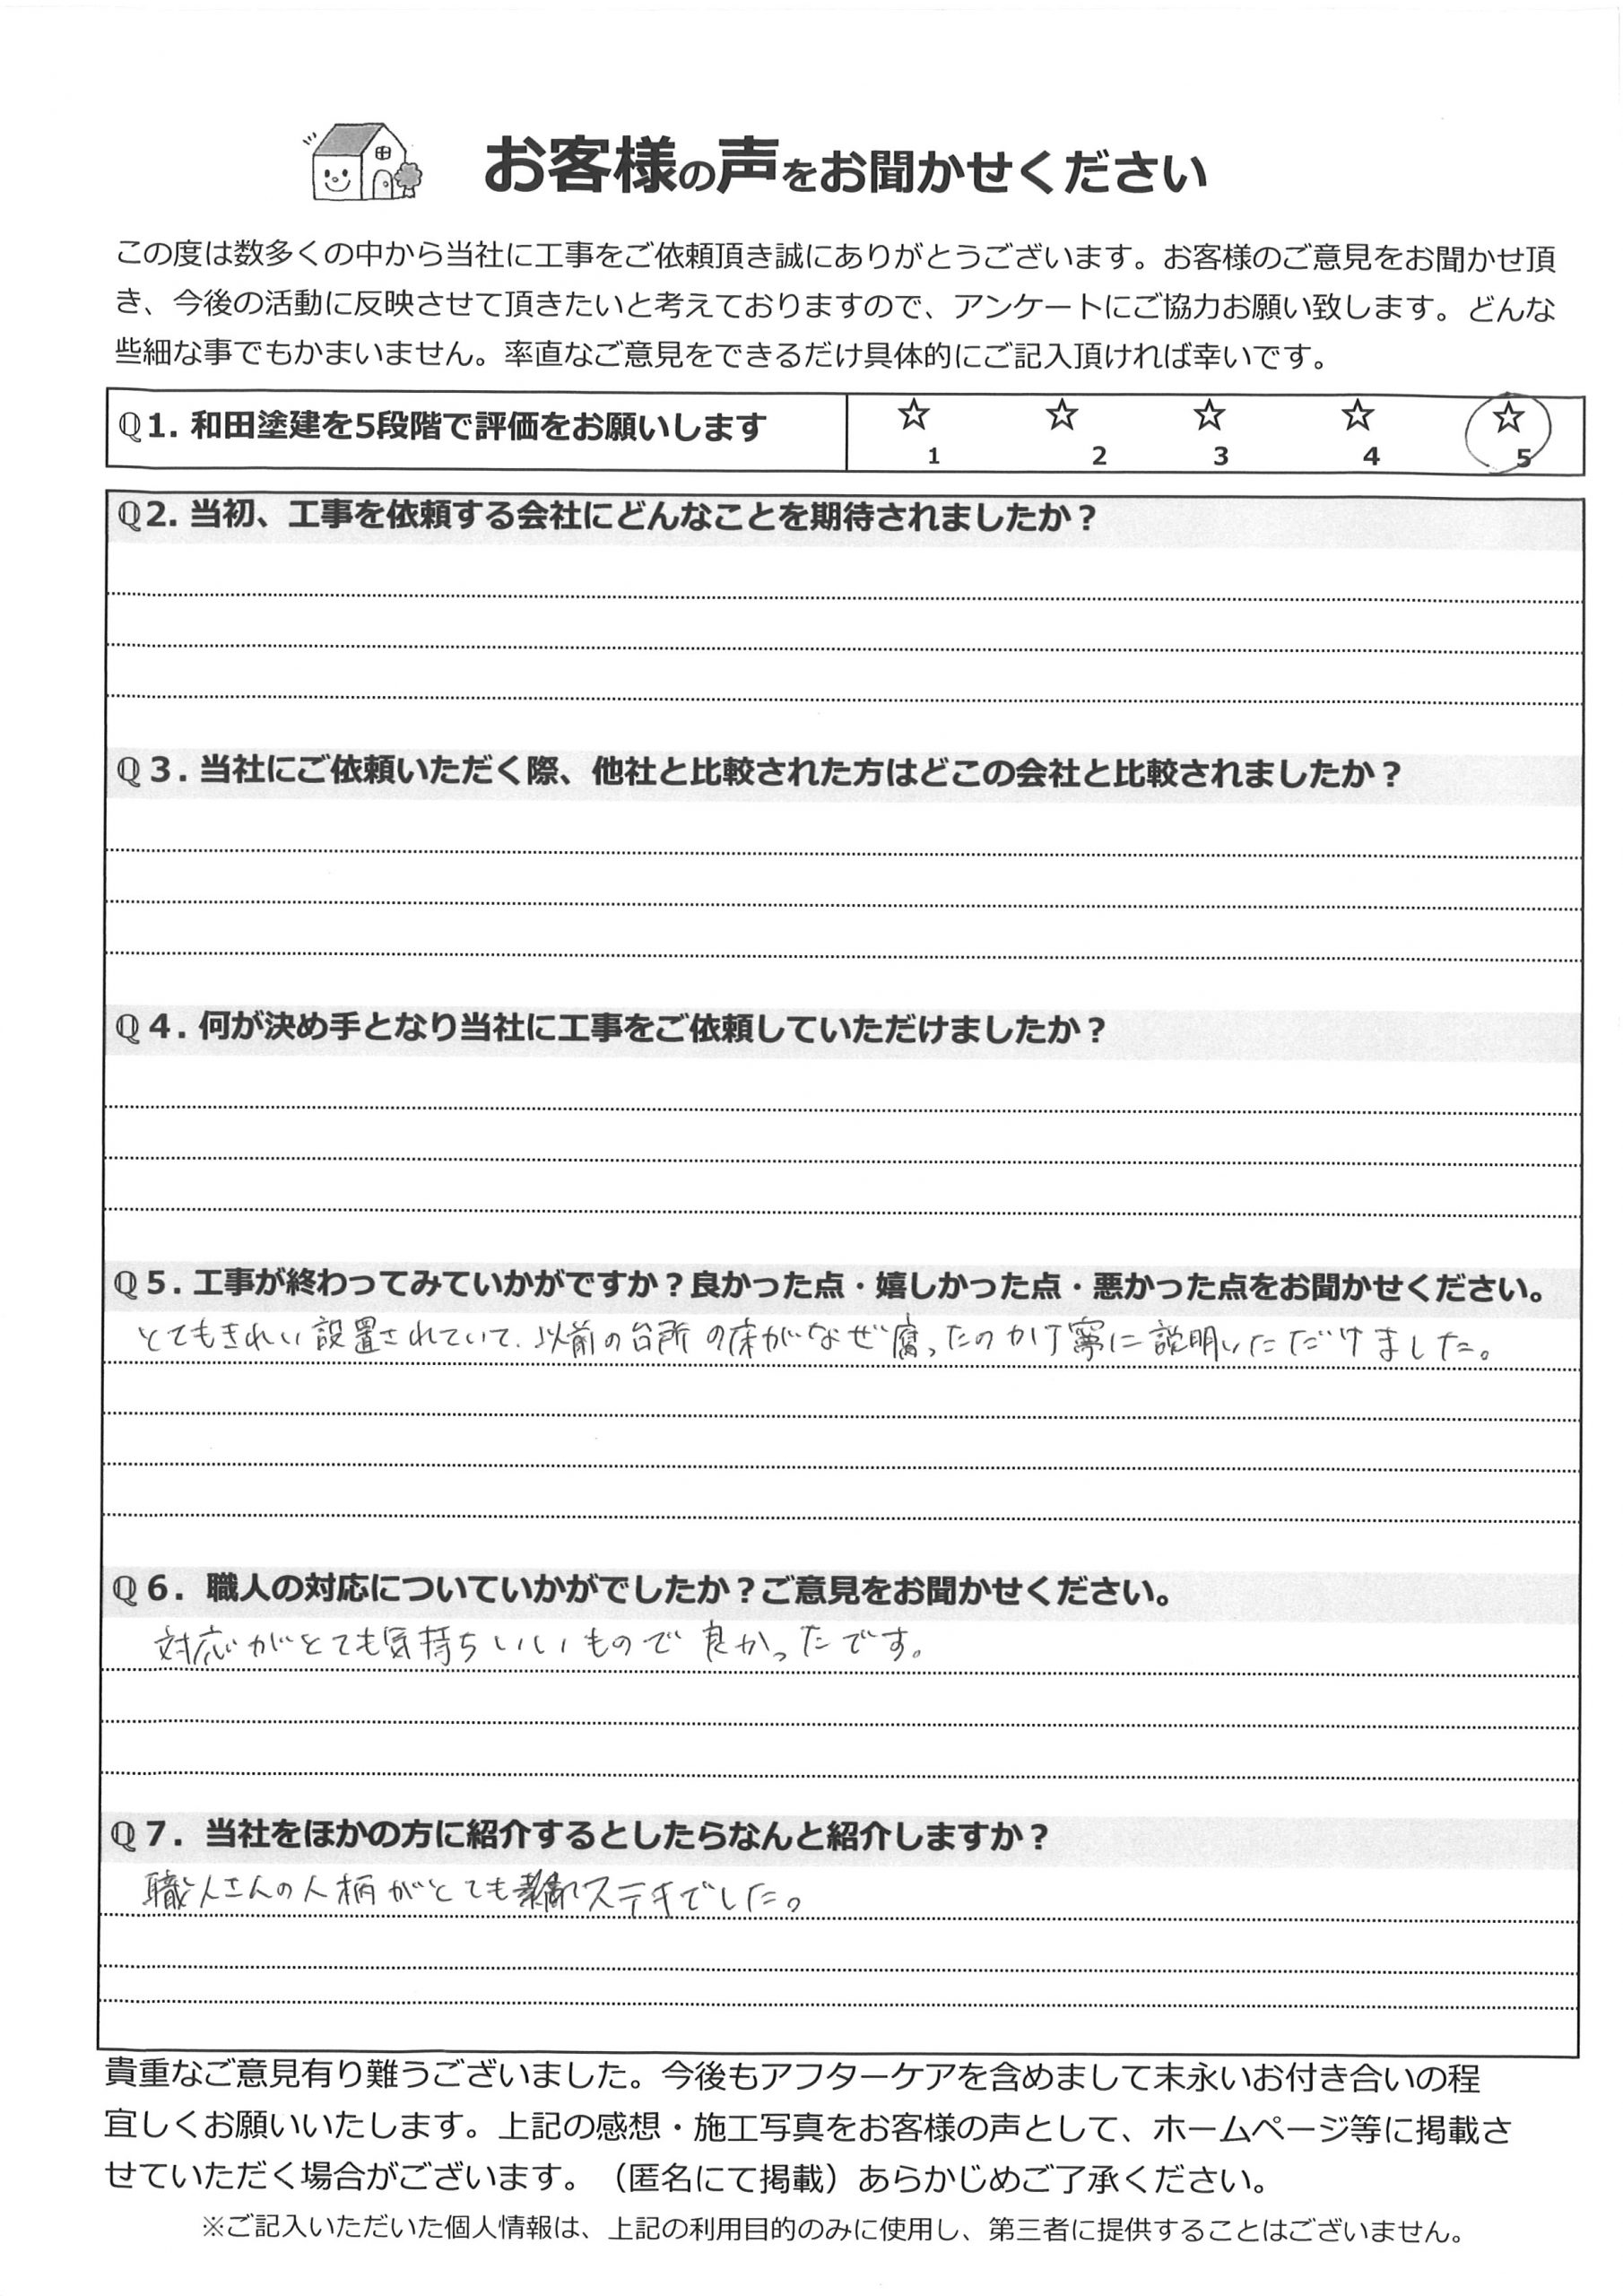 お客様の声をお聞かせください
この度は数多くの中から当社に工事をご依頼頂き誠にありがとうございます。お客様のご意見をお聞かせ頂
き、今後の活動に反映させて頂きたいと考えておりますので、アンケートにご協力お願い致します。どんな
些細な事でもかまいません。率直なご意見をできるだけ具体的にご記入頂ければ幸いです。
Q1. 和田塗建を5段階で評価をお願いします
☆ ☆ ☆ ☆ ☆
1 2 3 4 5
Q2. 当初、工事を依頼する会社にどんなことを期待されましたか？
Q３. 当社にご依頼いただく際、他社と比較された方はどこの会社と比較されましたか？
Q４. 何が決め手となり当社に工事をご依頼していただけましたか？
Q５. 工事が終わってみていかがですか？良かった点・嬉しかった点・悪かった点をお聞かせください。
とてもきれい設置されていて、以前の台所の床がなぜ腐ったのか丁寧に説明いただけました。
Q６．職人の対応についていかがでしたか？ご意見をお聞かせください。
対応がとても気持ちいいもので良かったです。
Q７．当社をほかの方に紹介するとしたらなんと紹介しますか？
職人さんの人柄がとてもステキでした。
貴重なご意見有り難うございました。今後もアフターケアを含めまして末永いお付き合いの程
宜しくお願いいたします。上記の感想・施工写真をお客様の声として、ホームページ等に掲載さ
せていただく場合がございます。（匿名にて掲載）あらかじめご了承ください。
※ご記入いただいた個人情報は、上記の利用目的のみに使用し、第三者に提供することはございません。